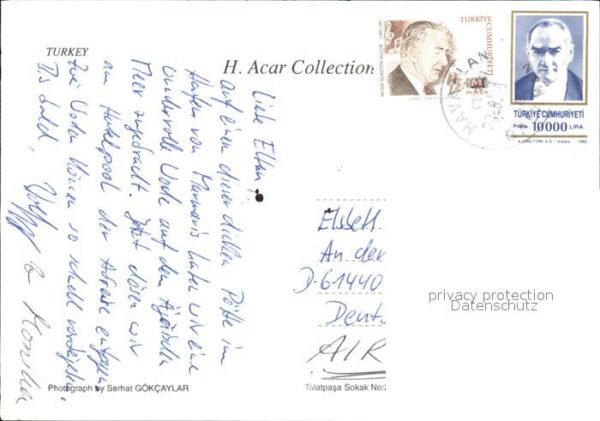 TURKEY
H. Acar Collection
TÜRKİYE
CUMHURİYETİ
POSTA
TÜRKİYE CUMHURİYETİ
Posta 10000 LİRA
Liebe Eltern,
auf einem dieser dicken Pötte im
Hafen von Marmaris haben wir eine
wundervolle Woche auf dem Ägäischen
Meer zugebracht. Jetzt dösen wir
am Hotelpool der Abreise entgegen.
Zwei Wochen können so schnell vergehen.
Bis bald,
& Monika
An der
D-61440
Deut
AIR
privacy protection
Datenschutz
Photograph by Serhat GÖKÇAYLAR
Talatpaşa Sokak No:2